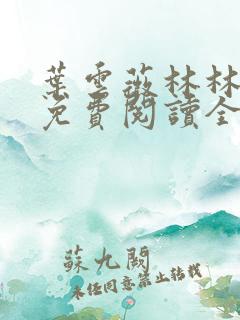 葉雲薇林林
免費閱讀全
蘇九闕
未经同意禁止转载